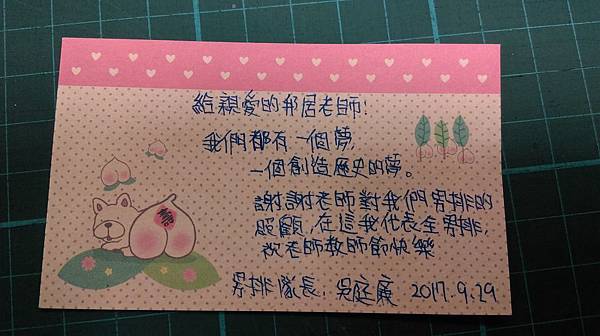 給親愛的邻居老師!
我們都有一個夢,
一個創造歷史的夢。
謝謝老師對我們男排的
照顧,在這我代表全男排,
祝老師教師節快樂
男排隊長:吳庭廣 2017.9.29